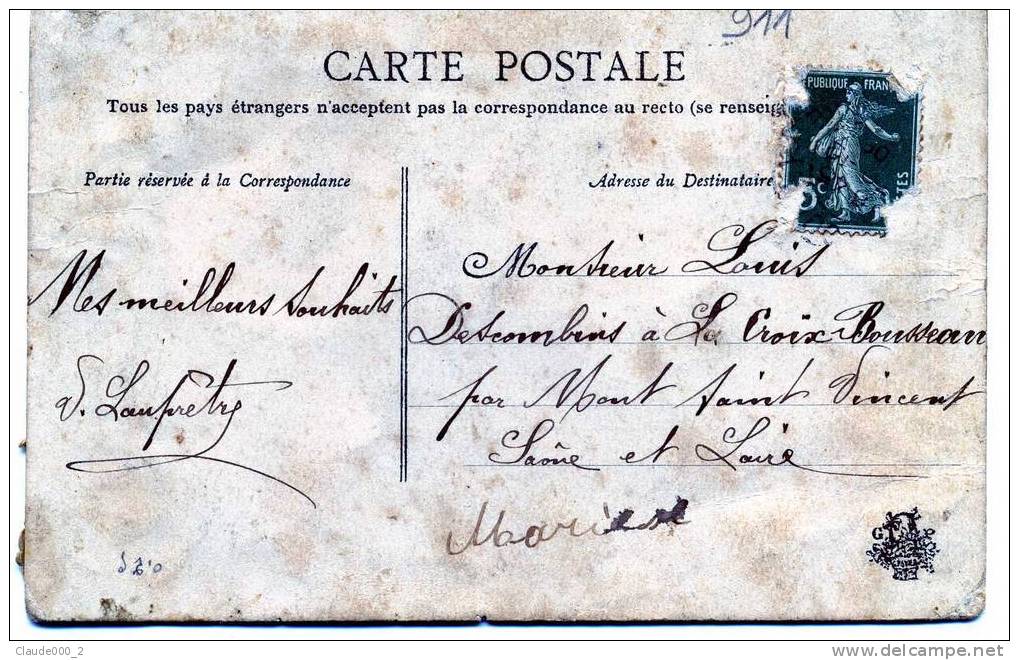 911
CARTE POSTALE
Tous les pays étrangers n'acceptent pas la correspondance au recto (se renseig
PUBLIQUE FRAN
5c
TES
Partie réservée à la Correspondance
Adresse du Destinataire
Mes meilleurs souhaits
Monsieur Louis
Descombins à La Croix Rousseau
par Mont Saint Vincent
Saône et Loire
Marie
Claude000_2
delcampe.net